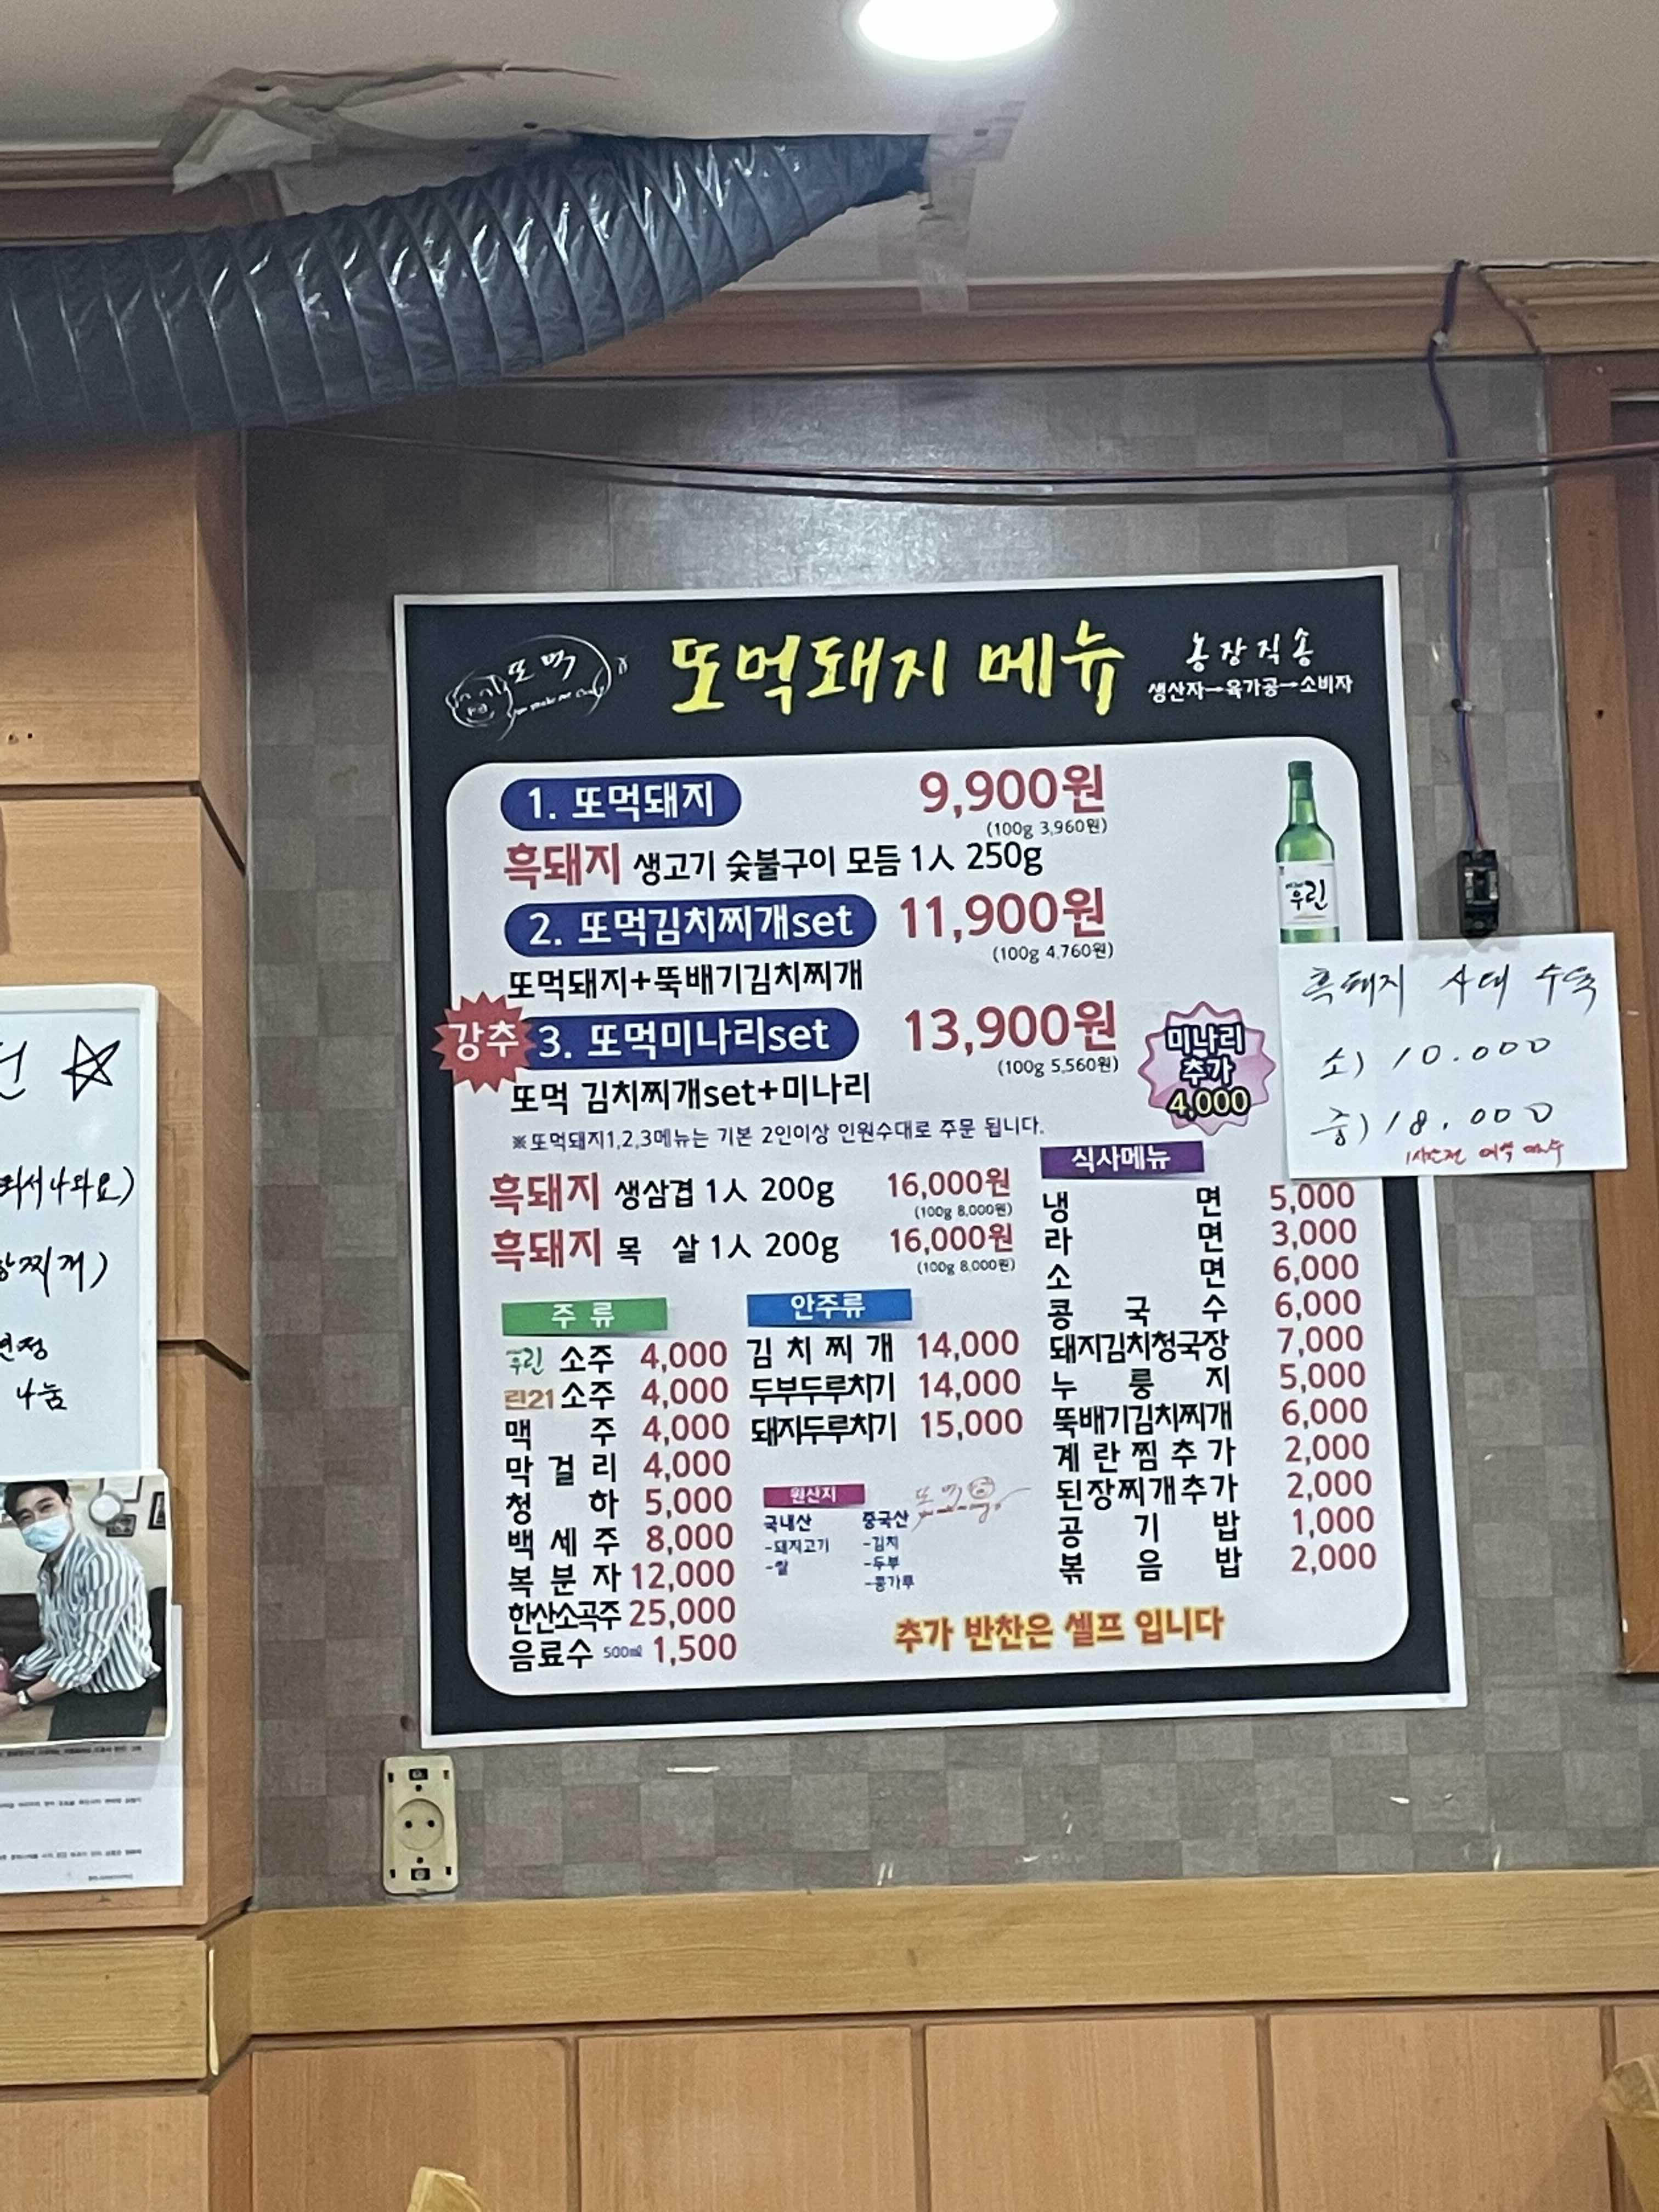 또먹
또먹돼지 메뉴
농장직송
생산자→육가공→소비자
1. 또먹돼지 9,900원
(100g 3,960원)
흑돼지 생고기 숯불구이 모듬 1人 250g
2. 또먹김치찌개set 11,900원
(100g 4,760원)
또먹돼지+뚝배기김치찌개
강추 3. 또먹미나리set 13,900원
(100g 5,560원)
또먹 김치찌개set+미나리
※또먹돼지1,2,3메뉴는 기본 2인이상 인원수대로 주문 됩니다.
미나리
추가
4,000
우린
흑돼지 생삼겹 1人 200g 16,000원
(100g 8,000원)
흑돼지 목 살 1人 200g 16,000원
(100g 8,000원)
주 류
우린 소주 4,000
린21 소주 4,000
맥 주 4,000
막 걸 리 4,000
청 하 5,000
백 세 주 8,000
복 분 자 12,000
한산소곡주 25,000
음료수 500㎖ 1,500
안주류
김 치 찌 개 14,000
두부두루치기 14,000
돼지두루치기 15,000
원산지
국내산
-돼지고기
-쌀
중국산
-김치
-두부
-콩가루
또먹
식사메뉴
냉 면 5,000
라 면 3,000
소 면 6,000
콩 국 수 6,000
돼지김치청국장 7,000
누 룽 지 5,000
뚝배기김치찌개 6,000
계 란 찜 추 가 2,000
된장찌개추가 2,000
공 기 밥 1,000
볶 음 밥 2,000
추가 반찬은 셀프 입니다
흑돼지 사태 수육
소) 10.000
중) 18.000
1시간전 예약 필수
나와요)
찌개)
나눔